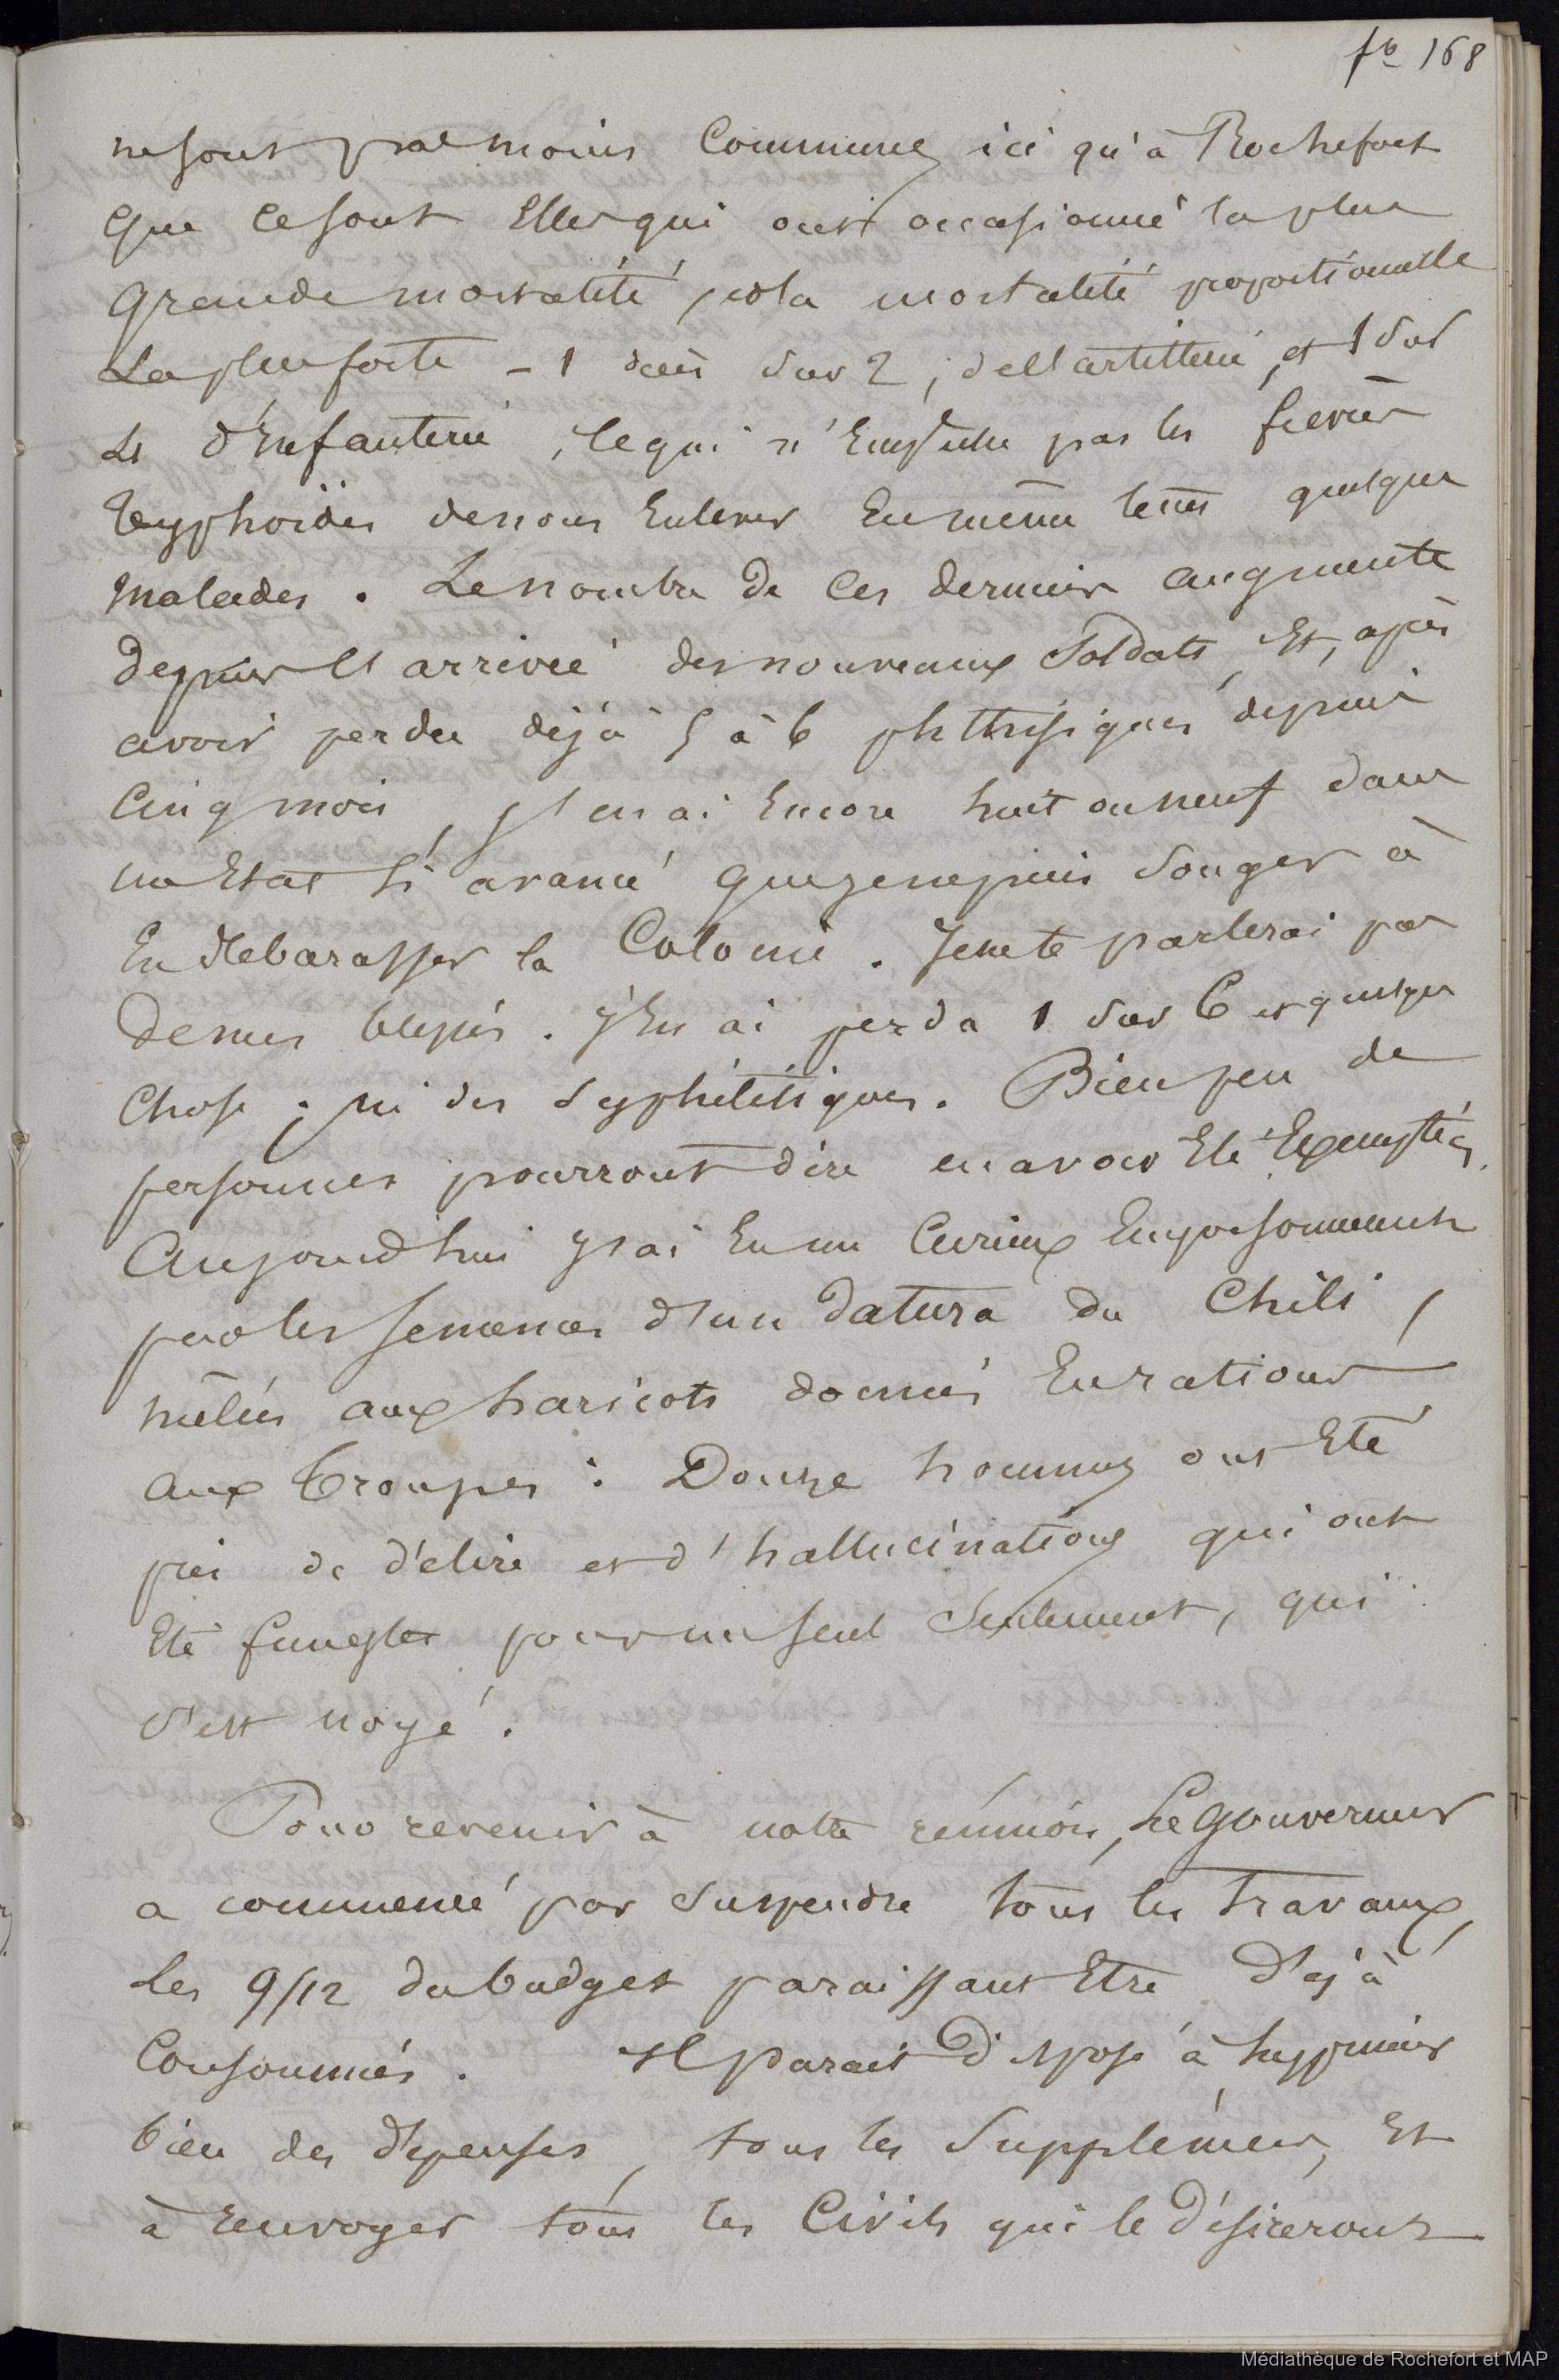 fo 168
ne sont pas moins communes ici qu'à Rochefort
que ce sont Elles qui ont occasionné la plus
grande mortalité, et la mortalité proportionnelle
la plus forte - 1 décès sur 2, de l'artillerie, et 1 sur
4 d'Infanterie, ce qui n'Empêche pas les fièvres
typhoïdes de nous Enlever En même tems quelques
malades. Le nombre de ces derniers augmente
depuis l'arrivée des nouveaux soldats, Et, après
avoir perdu déjà 5 à 6 phthisiques depuis
cinq mois, j'en ai Encore huit ou neuf dans
un Etat si avancé que je ne puis songer à
En débarasser la Colonie. Je ne te parlerai pas
de mes blessés. J'En ai perdu 1 sur 6 et quelque
chose; ni des syphilitiques. Bien peu de
personnes pourront dire en avoir Eté Exemptées.
Aujourd'hui j'ai Eu un curieux Empoisonnement
par les semences d'un Datura du Chili,
mêlées aux haricots donnés En rations
aux troupes: Douze hommes ont Eté
pris de délire et d'hallucinations qui ont
Eté funestes pour un seul seulement, qui
s'est noyé.
Pour revenir à notre réunion, Le Gouverneur
a commencé par suspendre tous les travaux,
Les 9/12 du budget paraissant Etre déjà
consommés. Il parait disposé à supprimer
bien des dépenses, tous les supplémens, Et
à renvoyer tous les Civils qui le désireront
Médiathèque de Rochefort et MAP